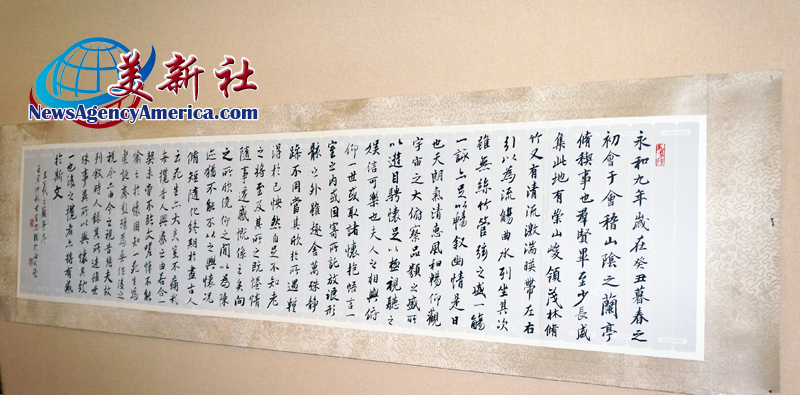 美新社
NewsAgencyAmerica.com
永和九年歲在癸丑暮春之
初會于會稽山陰之蘭亭
脩稧事也羣賢畢至少長咸
集此地有崇山峻領茂林脩
竹又有清流激湍暎帶左右
引以為流觴曲水列坐其次
雖無絲竹管弦之盛一觴
一詠亦足以暢叙幽情是日
也天朗氣清惠風和暢仰觀
宇宙之大俯察品類之盛所
以遊目騁懷足以極視聽之
娱信可樂也夫人之相與俯
仰一世或取諸懷抱悟言一
室之內或因寄所託放浪形
骸之外雖趣舍萬殊静
躁不同當其欣於所遇暫
得於己怏然自足不知老
之將至及其所之既惓情
隨事遷感慨係之矣向
之所欣俛仰之間以為陳
迹猶不能不以之興懷況
脩短隨化終期於盡古人
云死生亦大矣豈不痛哉
每攬昔人興感之由若合一
契未嘗不臨文嗟悼不能
喻之於懷固知一死生為
虛誕齊彭殤為妄作後之
視今亦今之視昔悲夫故
列叙時人錄其所述雖世
殊事異所以興懷其致
一也後之攬者亦將有感
於斯文
王羲之蘭亭序